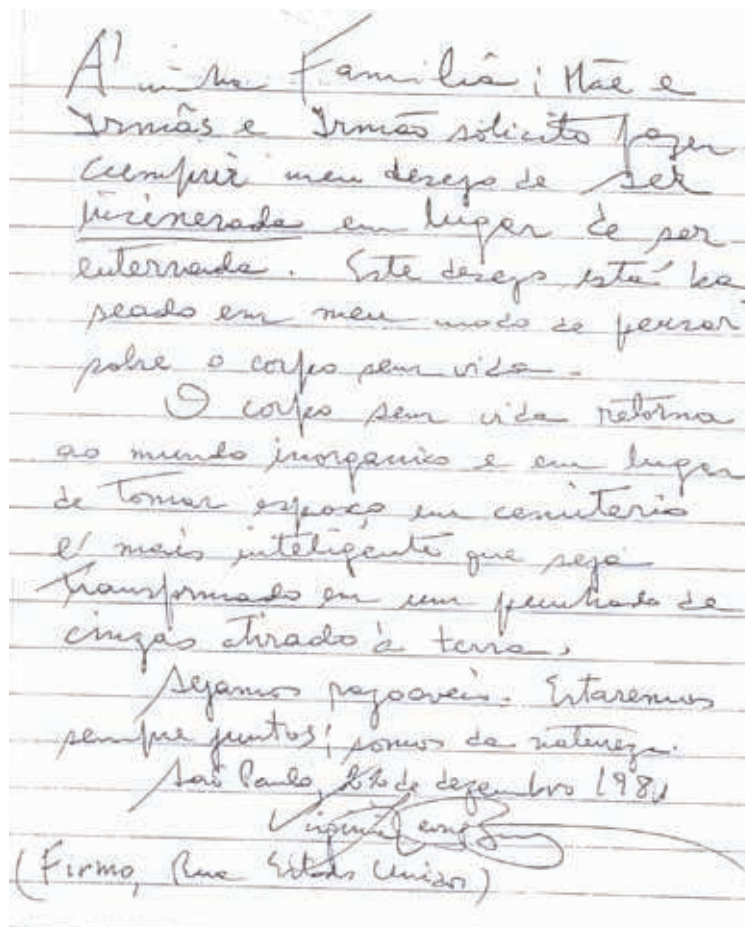 À minha Família; Mãe e
Irmãs e Irmão solicito fazer
cumprir meu desejo de ser
incinerada em lugar de ser
enterrada. Este desejo está ba
seado em meu modo de pensar
sobre o corpo sem vida.
O corpo sem vida retorna
ao mundo inorganico e em lugar
de tomar espaço em cemiterio
é mais inteligente que seja
transformado em um punhado de
cinzas atirado à terra.
Sejamos razoaveis. Estaremos
sempre juntos; somos da natureza.
São Paulo, de dezembro 1981
(Firmo, Rua Estados Unidos)